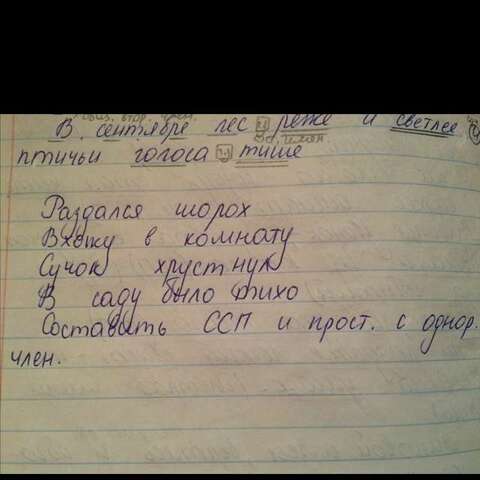 однор. втор. член.
В сентябре лес реже и светлее
птичьи голоса тише
Раздался шорох
Вхожу в комнату
Сучок хрустнул
В саду было тихо
Составить ССП и прост. с однор.
член.